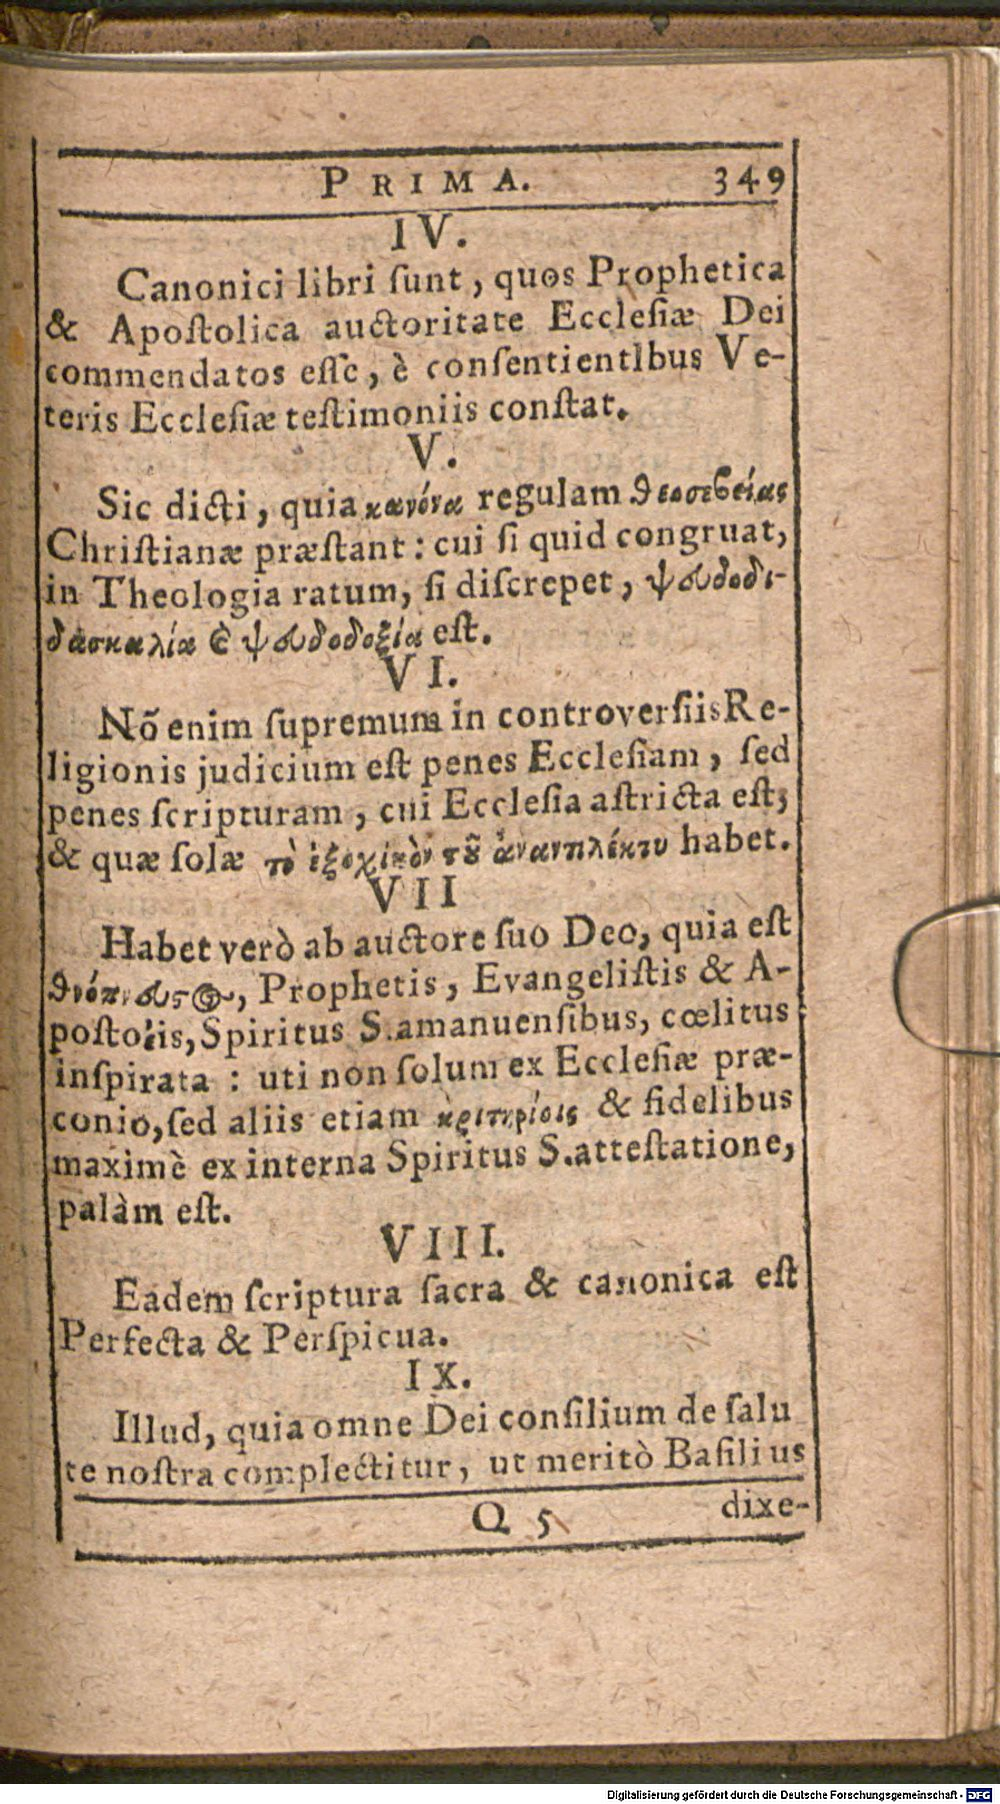 PRIMA. 349
IV.
Canonici libri ſunt, quos Prophetica
& Apoſtolica auctoritate Eccleſiæ Dei
commendatos eſſe, è conſentientibus Ve-
teris Eccleſiæ teſtimoniis conſtat.
V.
Sic dicti, quia κανόνα regulam θεοσεβείας
Chriſtianæ præſtant: cui ſi quid congruat,
in Theologia ratum, ſi diſcrepet, ψευδοδι-
δασκαλία & ψευδοδοξία eſt.
VI.
Nõ enim ſupremum in controverſiis Re-
ligionis judicium eſt penes Eccleſiam, ſed
penes ſcripturam, cui Eccleſia aſtricta eſt,
& quæ ſolæ τὸ ἐξοχικὸν τȣ̃ ἀναντιλέκτȣ habet.
VII
Habet verò ab auctore ſuo Deo, quia eſt
θεόπνευςος, Prophetis, Evangeliſtis & A-
poſtolis, Spiritus S. amanuenſibus, cœlitus
inſpirata: uti non ſolum ex Eccleſiæ præ-
conio, ſed aliis etiam κριτηρίοις & fidelibus
maximè ex interna Spiritus S. atteſtatione,
palàm eſt.
VIII.
Eadem ſcriptura ſacra & canonica eſt
Perfecta & Perſpicua.
IX.
Illud, quia omne Dei conſilium de ſalu
te noſtra complectitur, ut meritò Baſilius
Q 5 dixe-
Digitalisierung gefördert durch die Deutsche Forschungsgemeinschaft - DFG